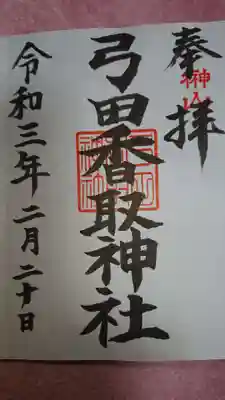 奉拝
弓田香取神社
令和三年二月二十日